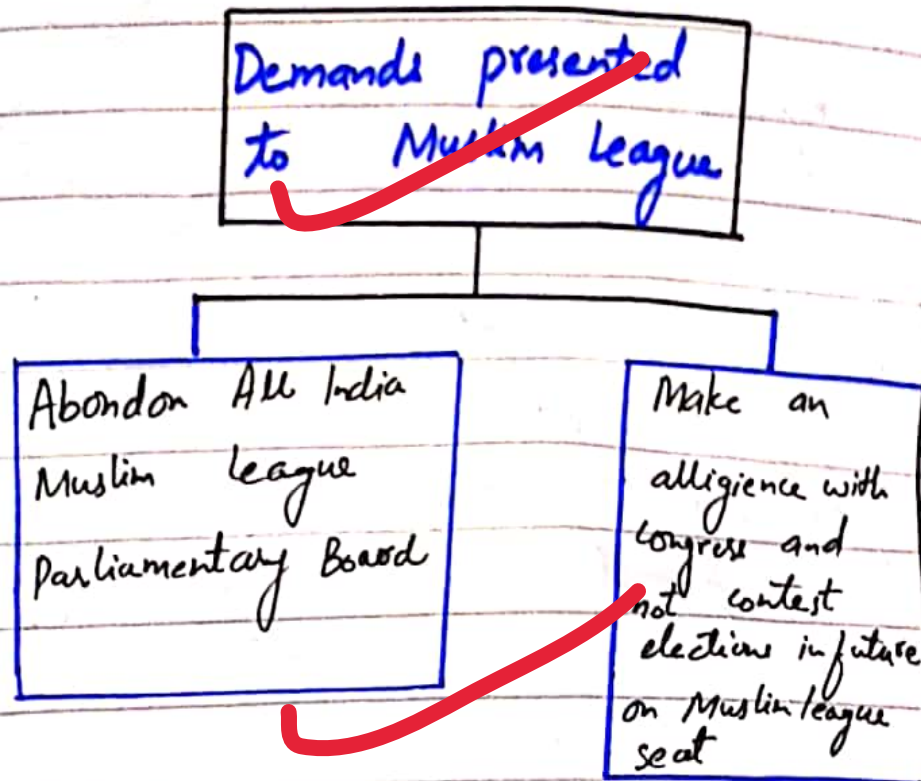 Demands presented
to Muslim League
Abondon All India
Muslim league
Parliamentary Board
Make an
alligience with
congress and
not contest
elections in future
on Muslim league
seat